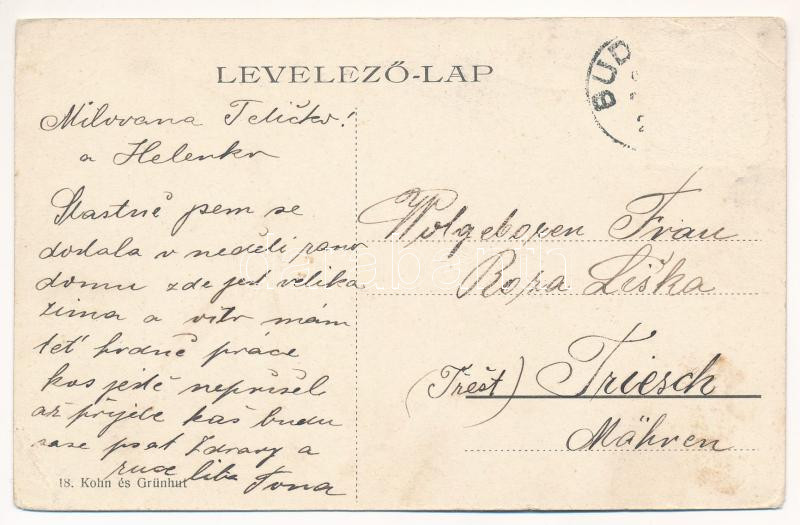 LEVELEZŐ-LAP
BUD
Milovana Teličko!
a Helenko
Stastně jsem se
dodala v neděli rano
domu zde jest velika
zima a vitr mám
teť hodně práce
kos jestě nepřisel
až přijde kaś budu
zase psat Zdravy a
ruce liba
18. Kohn és Grünhut
Wolgeboren Frau
Roza Liška
(Třešť) Triesch
Mähren